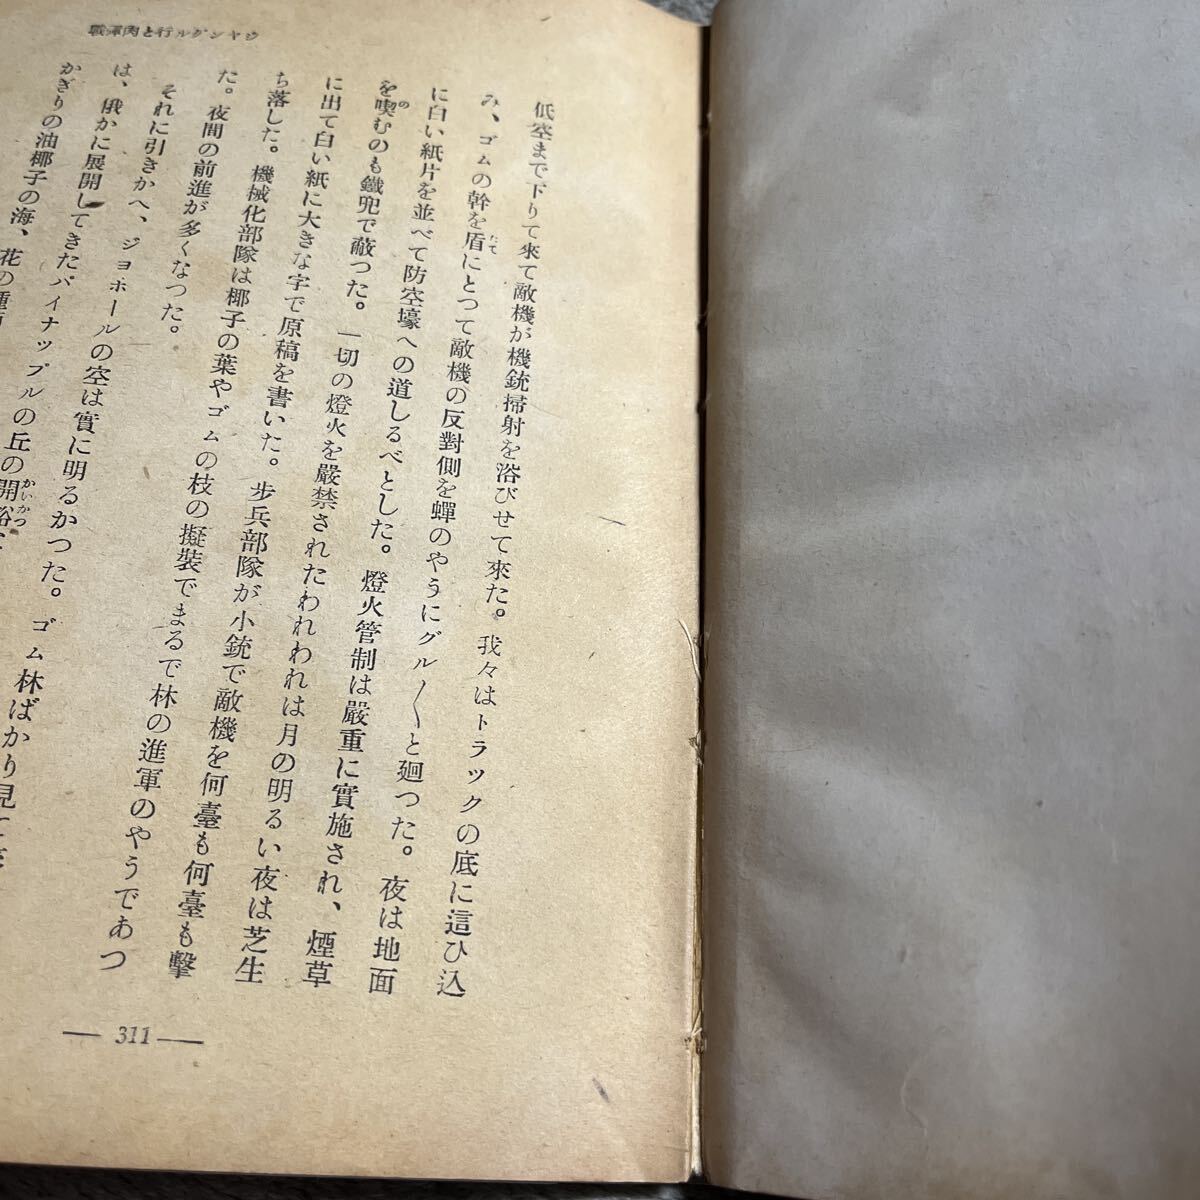 戰彈肉と行ルグンヤジ
低空まで下りて來て敵機が機銃掃射を浴びせて來た。我々はトラックの底に這ひ込
み、ゴムの幹を盾にとつて敵機の反對側を蟬のやうにグル〱と廻つた。夜は地面
に白い紙片を並べて防空壕への道しるべとした。燈火管制は嚴重に實施され、煙草
を喫むのも鐵兜で蔽つた。一切の燈火を嚴禁されたわれわれは月の明るい夜は芝生
に出て白い紙に大きな字で原稿を書いた。步兵部隊が小銃で敵機を何臺も何臺も擊
ち落した。機械化部隊は椰子の葉やゴムの枝の擬裝でまるで林の進軍のやうであつ
た。夜間の前進が多くなつた。
それに引きかへ、ジョホールの空は實に明るかつた。ゴム林ばかり見
は、俄かに展開してきたパイナップルの丘の開
かぎりの油椰子の海、花の
— 311 —